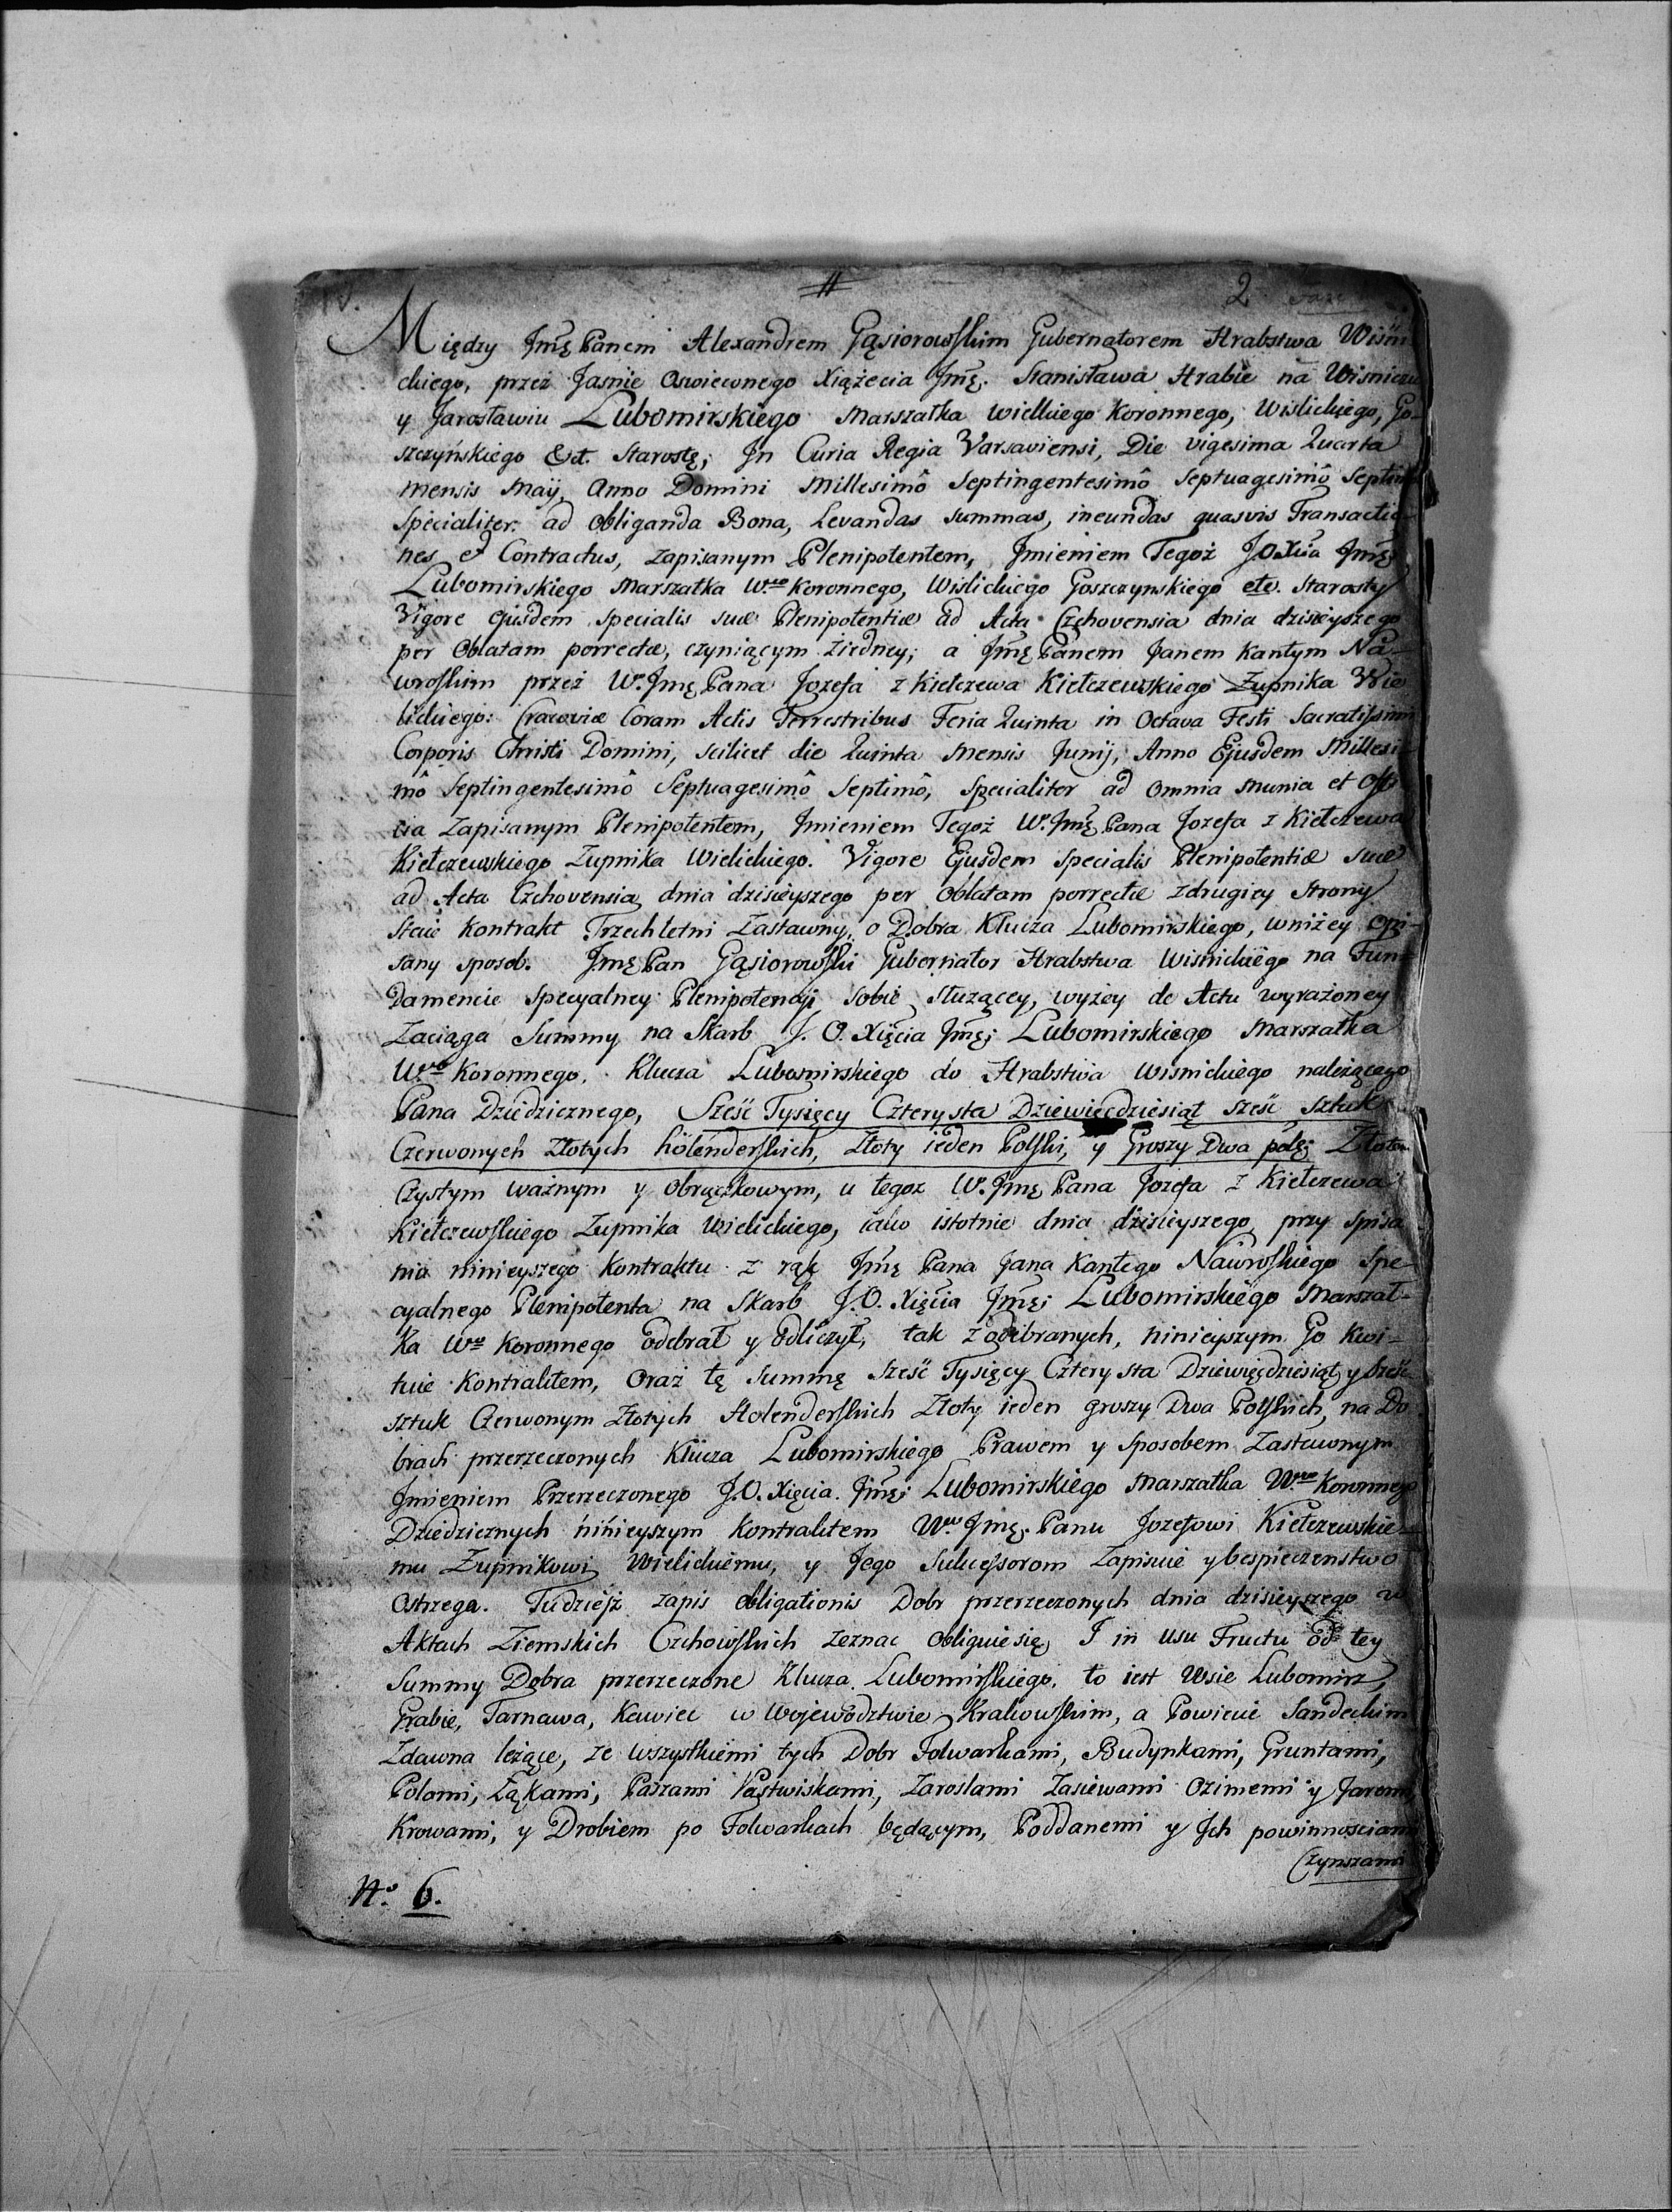 2
Między Jmę Panem Alexandrem Gąsiorowskim Gubernatorem Hrabstwa Wiśni
ckiego, przez Jasnie Oswieconego Xiążecia Jmę. Stanisława Hrabie na Wisniczu
y Jarosławiu Lubomirskiego Marszałka Wielkiego Koronnego, Wislickiego, Go-
szczyńskiego Ect. Starostę; In Curia Regia Varsaviensi, Die vigesima Quarta
mensis Maÿ, Anno Domini Millesimô Septingentesimô Septuagesimô Septim
Specialiter ad obliganda Bona, Levandas summas, ineundas quasvis Transactio-
nes et Contractus, zapisanym Plenipotentem, Jmieniem Tegoż J.O.Xcia Jmę
Lubomirskiego Marszałka Wgo Koronnego, Wislickiego Goszczynskiego etc. Starosty
Vigore ejusdem specialis suæ Plenipotentiæ ad Acta Czchovensia dnia dzisieyszego
per Oblatam porrectæ, czyniącym ziedney; a Jmę Panem Janem Kantym Na-
wroskim przez W. Jmę Pana Jozefa z Kiełczewa Kiełczewskiego Zupnika Wie
lickiego: Cracoviæ Coram Actis Terrestribus Feria Quinta in Octava Festi Sacratissimi
Corporis Christi Domini, scilicet die Quinta Mensis Junij, Anno Ejusdem Millesi-
mô Septingentesimô Septuagesimô Septimô, Specialiter ad Omnia Munia et Offi
cia Zapisanym Plenipotentem, Jmieniem Tegoż W. Jmę Pana Jozefa z Kiełczewa
Kiełczewskiego Zupnika Wielickiego. Vigore Ejusdem Specialis Plenipotentiæ suæ
ad Acta Czchovensia dnia dzisieyszego per Oblatam porrectæ zdrugiey Strony
Staie Kontrakt Trzechletni Zastawny, o Dobra Klucza Lubomirskiego, wniżey opi-
sany sposob. Jmę Pan Gąsiorowski Gubernator Hrabstwa Wisnickiego na Fun-
damencie Specyalney Plenipotencji sobie służącey, wyżey de Actu wyrażoney
Zaciąga Summy na Skarb J. O. Xięcia Jmę; Lubomirskiego Marszałka
Wgo Koronnego, Klucza Lubomirskiego do Hrabstwa Wisnickiego należącego
Pana Dziedzicznego, Sześć Tysięcy Czterysta Dziewięcdziesiąt sześć sztuk
Czerwonych Złotych hölenderskich, złoty ieden Polski, y Groszy Dwa polę; Złotem
Czystym ważnym y obrączkowym, u tegoz W. Jmę Pana Jozefa z Kiełczewa
Kiełczewskiego Zupnika Wielickiego, iako istotnie dnia dzisieyszego przy Spisa
nia ninieyszego Kontraktu z rąk Jmę Pana Jana Kantego Nawroskiego Spe-
cyalnego Plenipotenta na Skarb J.O. Xięcia Jmę; Lubomirskiego Marszał-
ka Wgo Koronnego odebrał y odliczył, tak z odebranych, ninieyszym Go Kwi-
tuie Kontraktem, oraz tę Summę sześć Tysięcy Cztery sta Dziewięćdziesiąt y sześć
sztuk Czerwonym Złotych Holenderskich Złoty ieden groszy Dwa Polskich, na Do
brach przerzeczonych Klucza Lubomirskiego Prawem y Sposobem Zastawnym
Jmieniem Przerzeczonego J.O. Xięcia Jmę; Lubomirskiego Marszałka Wgo Koronnego
Dziedzicznych ninieyszym Kontraktem Wmu Jmę. Panu Jozefowi Kiełczewskie-
mu Zupnikowi Wielickiemu, y Jego Sukcessorom Zapisuie y bespieczenstwo
Ostrzega. Tudzież zapis obligationis Dobr przerzeczonych dnia dzisieyszego w
Aktach Ziemskich Czchowskich zeznac obliguie się, I in usu Fructu od tey
Summy Dobra przerzeczone Klucza Lubomirskiego, to iest Wsie Lubomirz,
Grabie, Tarnawa, Kawiec w Wojewodztwie Krakowskim, a Powiecie Sandeckim
Zdawna leżące, ze wszystkiemi tych Dobr Folwarkami, Budynkami, Gruntami,
Polami, Łąkami, Paszami Pastwiskami, Zaroslami Zasiewami Ozimemi y Jaremi,
Krowami, y Drobiem po Folwarkach będącym, Poddanemi y Jch powinnosciami
Czynszami
No 6.